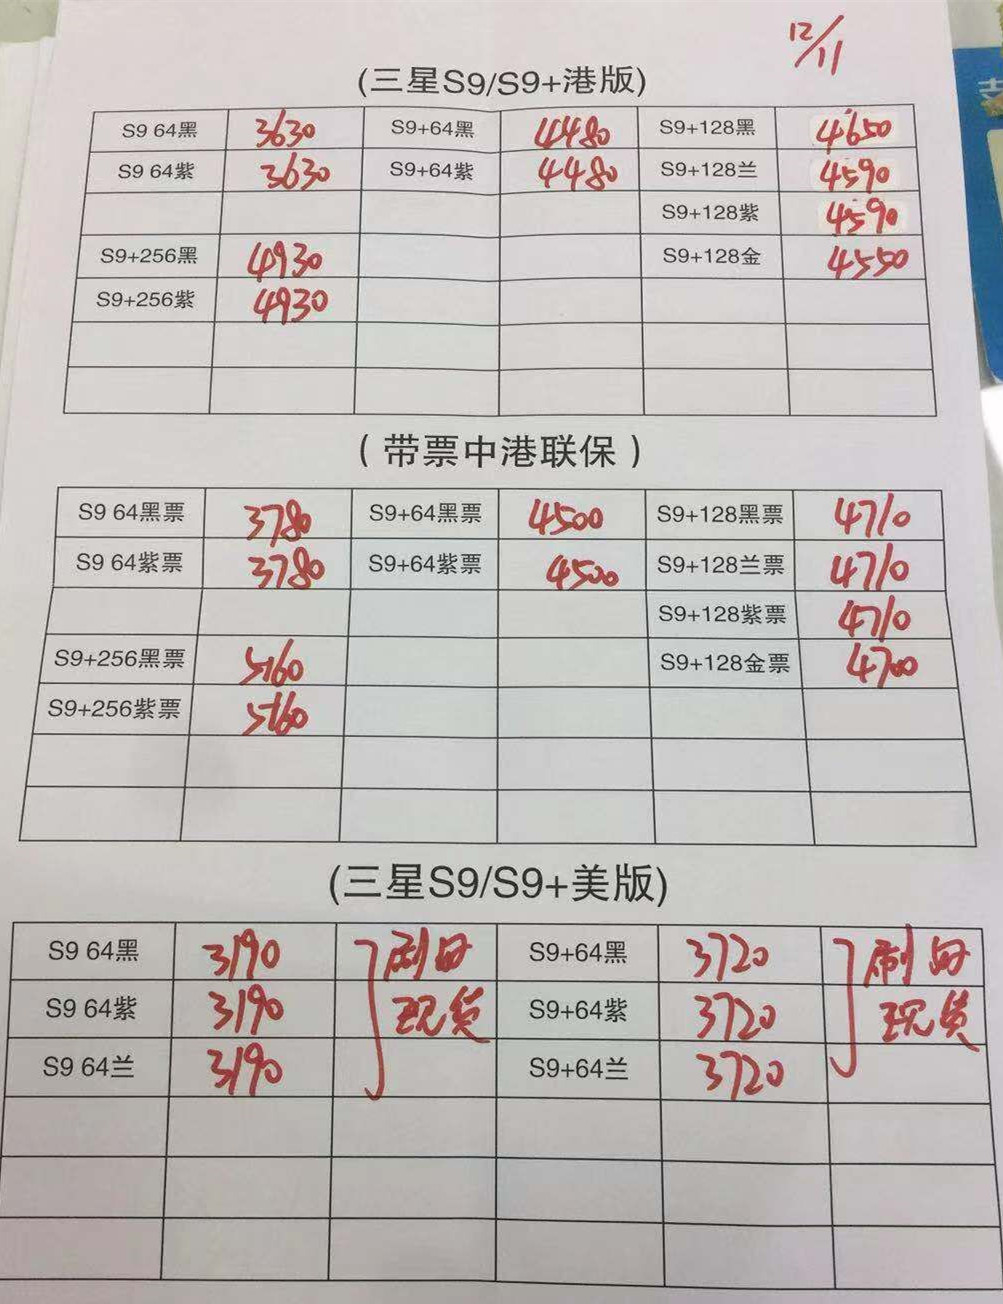 12/11
(三星S9/S9+港版)
S9 64黑 3630 S9+64黑 4480 S9+128黑 4650
S9 64紫 3630 S9+64紫 4480 S9+128兰 4590
S9+128紫 4590
S9+256黑 4930 S9+128金 4550
S9+256紫 4930
(带票中港联保)
S9 64黑票 3780 S9+64黑票 4500 S9+128黑票 4710
S9 64紫票 3780 S9+64紫票 4500 S9+128兰票 4710
S9+128紫票 4710
S9+256黑票 5160 S9+128金票 4700
S9+256紫票 5160
(三星S9/S9+美版)
S9 64黑 3190 刷 S9+64黑 3720 刷
S9 64紫 3190 现货 S9+64紫 3720 现货
S9 64兰 3190 S9+64兰 3720